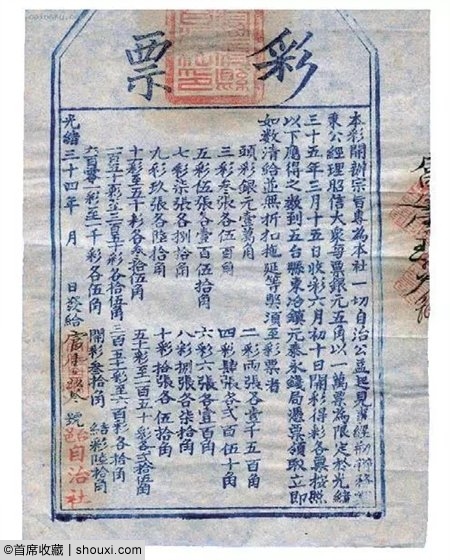 彩票
本彩開辦宗旨專為本社一切自治公益起見業經
東公經理昭信大眾每票銀元五角以一萬票為限定於光緒
三十五年三月十五日收彩六月初十日開彩得彩各票按照
以下應得之數到五台縣東冶鎮元泰永錢局憑票領取立即
如數清給並無折扣拖延等獘須至彩票者
頭彩銀元壹萬角 二彩兩張各壹千五百角
三彩叁張各五百角 四彩肆張各弍百五十角
五彩伍張各壹百五拾角 六彩六張各壹百角
七彩柒張各捌拾角 八彩捌張各柒拾角
九彩玖張各陸拾角 十彩拾張各伍拾角
十彩至五十彩各叁拾五角 五十彩至一百五十彩各弍拾五角
一百五十彩至三百五十彩各拾伍角 三百五十彩至六百彩各拾角
六百零一彩至一千彩各五角 開彩叁拾角 結彩陸拾角
光緒三十四年 月 日發給 號 自治社
©首席收藏 | shouxi.com